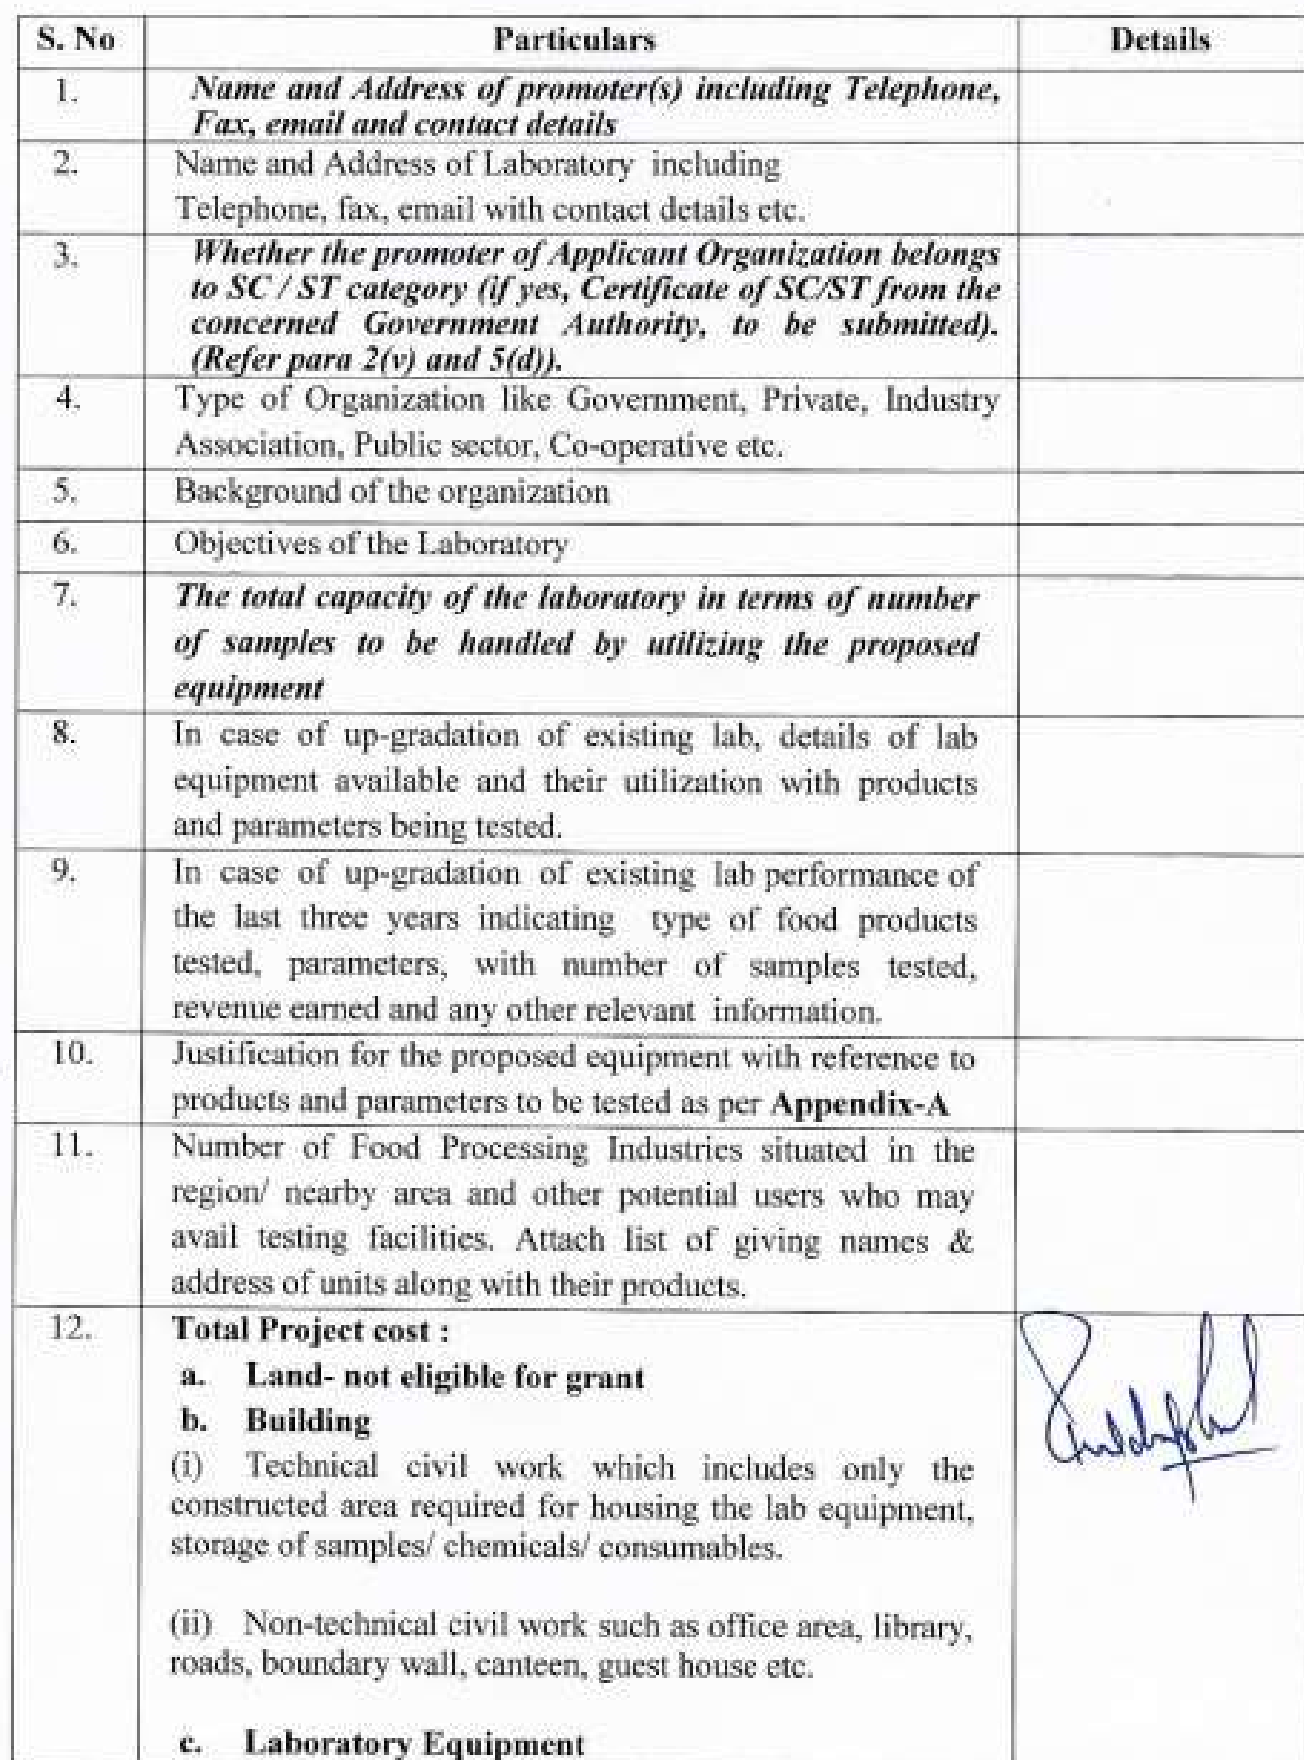 S. No Particulars Details
1. Name and Address of promoter(s) including Telephone,
Fax, email and contact details
2. Name and Address of Laboratory including
Telephone, fax, email with contact details etc.
3. Whether the promoter of Applicant Organization belongs
to SC / ST category (if yes, Certificate of SC/ST from the
concerned Government Authority, to be submitted).
(Refer para 2(v) and 5(d)).
4. Type of Organization like Government, Private, Industry
Association, Public sector, Co-operative etc.
5. Background of the organization
6. Objectives of the Laboratory
7. The total capacity of the laboratory in terms of number
of samples to be handled by utilizing the proposed
equipment
8. In case of up-gradation of existing lab, details of lab
equipment available and their utilization with products
and parameters being tested.
9. In case of up-gradation of existing lab performance of
the last three years indicating type of food products
tested, parameters, with number of samples tested,
revenue earned and any other relevant information.
10. Justification for the proposed equipment with reference to
products and parameters to be tested as per Appendix-A
11. Number of Food Processing Industries situated in the
region/ nearby area and other potential users who may
avail testing facilities. Attach list of giving names &
address of units along with their products.
12. Total Project cost :
a. Land- not eligible for grant
b. Building
(i) Technical civil work which includes only the
constructed area required for housing the lab equipment,
storage of samples/ chemicals/ consumables.
(ii) Non-technical civil work such as office area, library,
roads, boundary wall, canteen, guest house etc.
c. Laboratory Equipment